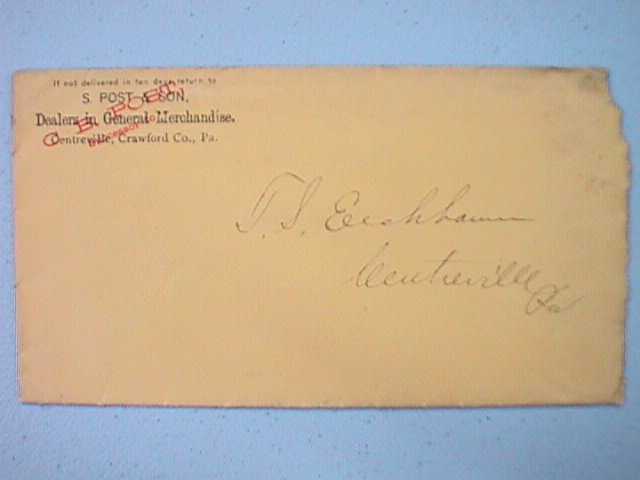 If not delivered in ten days return to
S. POST & SON,
Dealers in General Merchandise.
Centreville, Crawford Co., Pa.
C. B. POST
Successor to
T. S.
Centreville
Pa